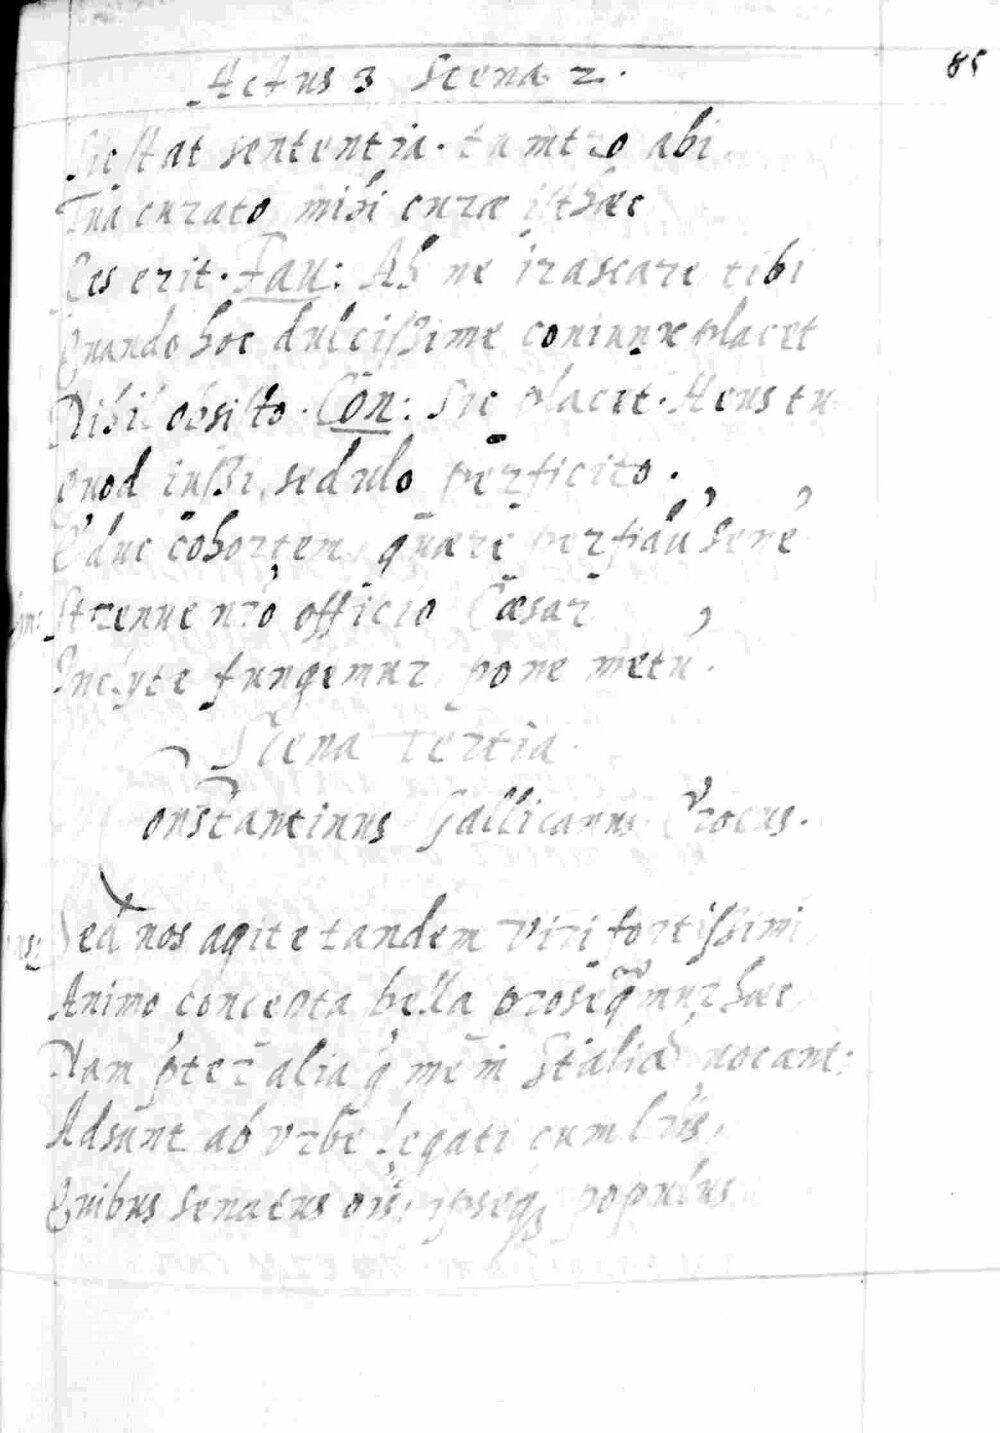 Actus 3 Scena 2.
85
Sic stat sententia. tu intro abi
Tua curato mihi curæ isthæc
Res erit. Fau: Ah ne irascare tibi
Quando hoc dulcißime coniunx placet
Nihil obsisto. Con: Sic placet. Heus tu
Quod iußi, sedulo perficito.
Educ cohortem, quære perfidu' sene'
Strenue nr̄o officio Cæsar
Inclyte fungemur, pone metu'.
Scena Tertia.
Constantinus Gallicanus Procus.
Sed nos agite tandem viri fortißimi
Animo concepta bella proseq̃mur hæc
Nam p'ter alia q' me in Italia' uocant:
Adsunt ab vrbe legati cum lr̄is,
Quibus senatus ois, ipseq; populus